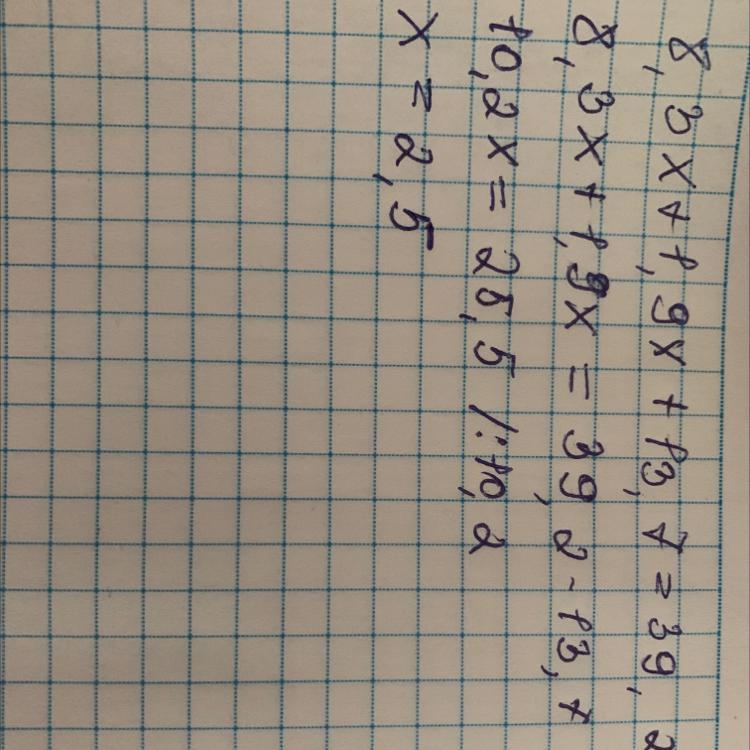 8,3x+1,9x+13,7=39,2
8,3x+1,9x=39,2-13,7
10,2x=25,5 /:10,2
x=2,5